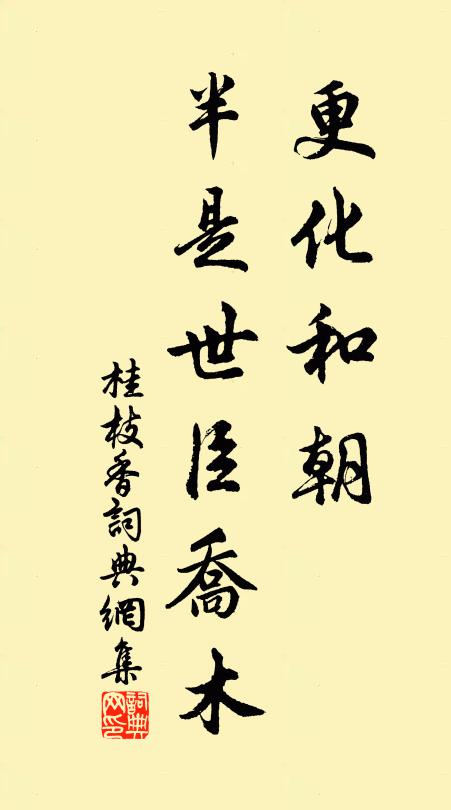 更化和朝
半是世臣喬木
桂枝香詞典網集
詞典
网印